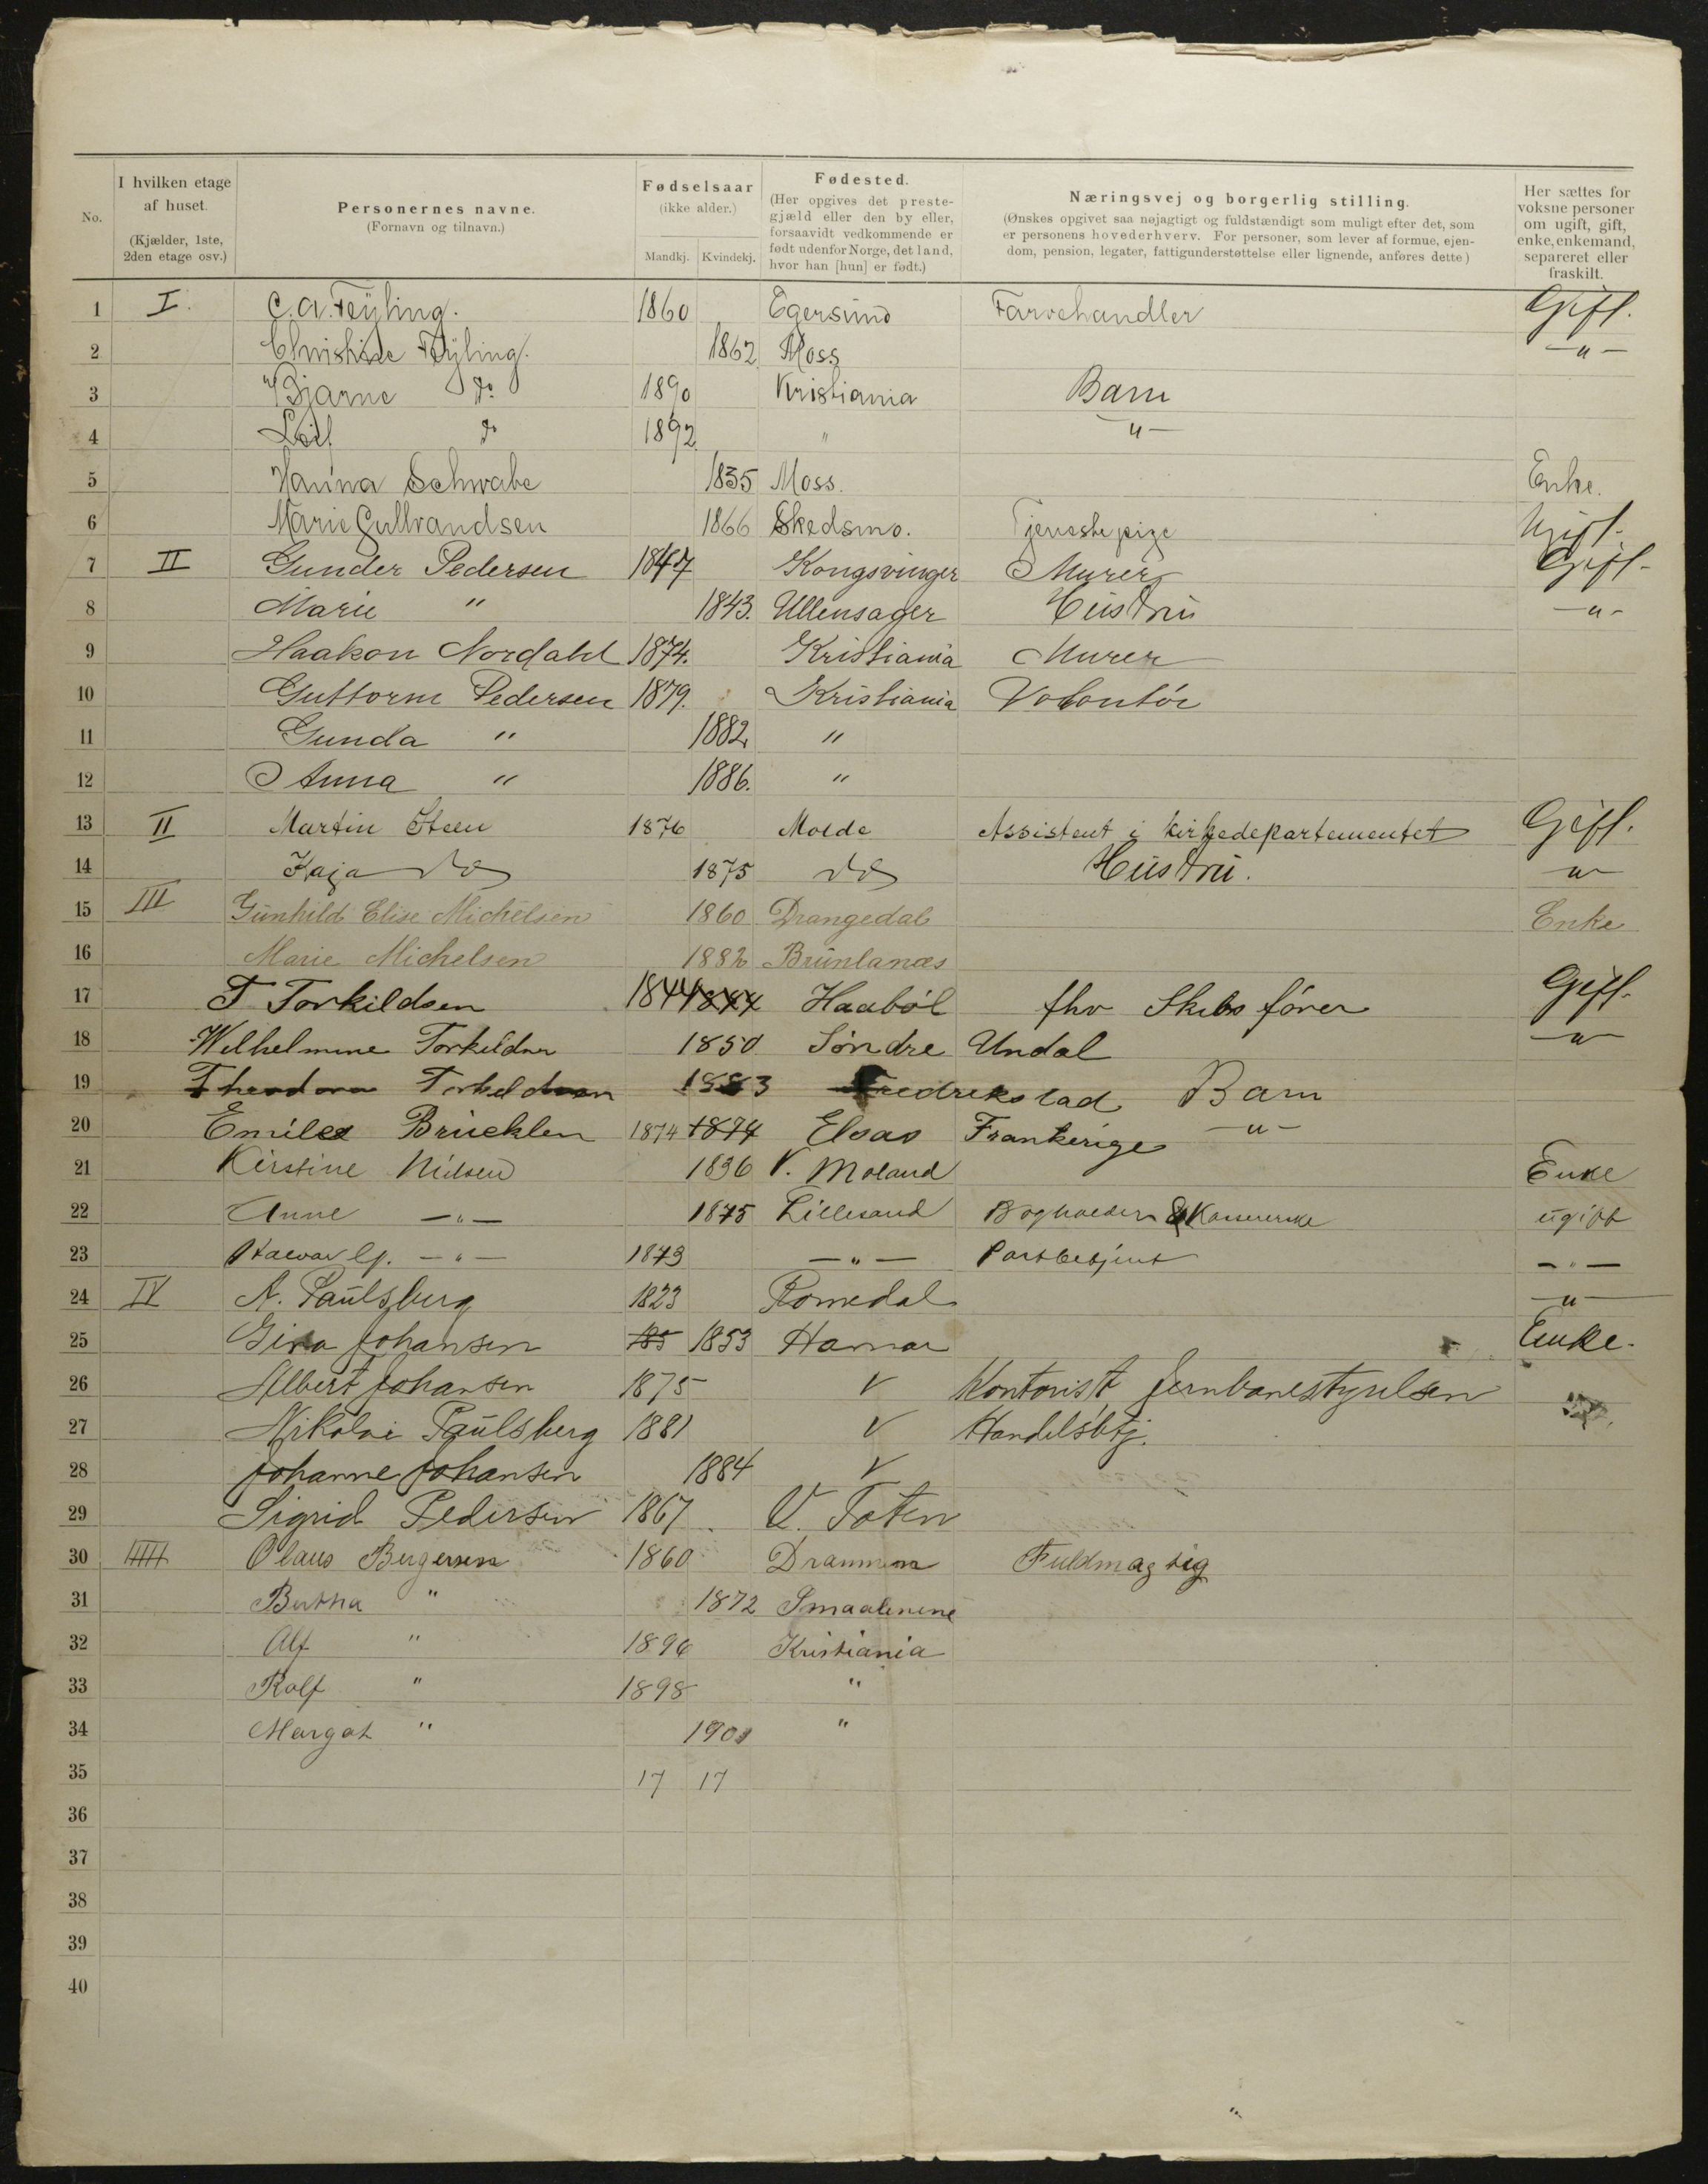 No. | I hvilken etage af huset. (Kjælder, 1ste, 2den etage osv.) | Personernes navne. (Fornavn og tilnavn.) | Fødselsaar (ikke alder.) Mandkj. Kvindekj. | Fødested. (Her opgives det prestegjæld eller den by eller, forsaavidt vedkommende er født udenfor Norge, det land, hvor han [hun] er født.) | Næringsvej og borgerlig stilling. (Ønskes opgivet saa nøjagtigt og fuldstændigt som muligt efter det, som er personens hovederhverv. For personer, som lever af formue, ejendom, pension, legater, fattigunderstøttelse eller lignende, anføres dette) | Her sættes for voksne personer om ugift, gift, enke, enkemand, separeret eller fraskilt.
1 I. C.A. Feyling. 1860 Egersund Farvehandler Gift.
2 Christine Feyling. 1862 Moss — " —
3 Bjarne do 1890 Kristiania Barn
4 Leif do 1892 " " —
5 Hanna Schwabe 1835 Moss. Enke.
6 Marie Gulbrandsen 1866 Skedsmo. Tjenestepige Ugift.
7 II Gunder Pedersen 1847 Kongsvinger Murer Gift.
8 Marie " 1843. Ullensager Hustru — " -
9 Haakon Nordahl 1874. Kristiania Murer
10 Guttorm Pedersen 1879. Kristiania Volontør
11 Gunda " 1882 "
12 Anna " 1886. "
13 II Martin Steen 1876 Molde Assistent i Kirkedepartementet Gift.
14 Kaja do 1875 do Hustru. "
15 III Gunhild Elise Michelsen 1860 Drangedal Enke
16 Marie Michelsen 1882 Brunlanæs
17 T Torkildsen 1844 1844 Haabøl fhv Skibsfører Gift.
18 Wilhelmine Torkildsen 1850 Søndre Undal — " —
19 Theodora Torkeldsen 1883 Fredrekstad Barn
20 Emiles Brücklen 1874 1874 Elsas Frankerige — " —
21 Kirstine Nielsen 1836 V. Moland Enke
22 Anne — " — 1875 Lillesand Bogholder & Kassererske ugift
23 Halvar — " — 1873 — " — Postbetjent — " —
24 IV A. Paulsberg 1823 Romedal — " —
25 Gina Johansen 185 1853 Hamar Enke.
26 Albert Johansen 1875 V Kontorist Jernbanestyrelsen
27 Nikolai Paulsberg 1881 V Handelsbtj.
28 Johanne Johansen 1884 V
29 Sigrid Pedersen 1867 V. Toten
30 IIIII Olaus Bergersen 1860 Drammen Fuldmægtig
31 Bertha " 1872 Smaalenene
32 Alf " 1896 Kristiania
33 Rolf " 1898 "
34 Margot " 1901 "
35 17 17
36
37
38
39
40